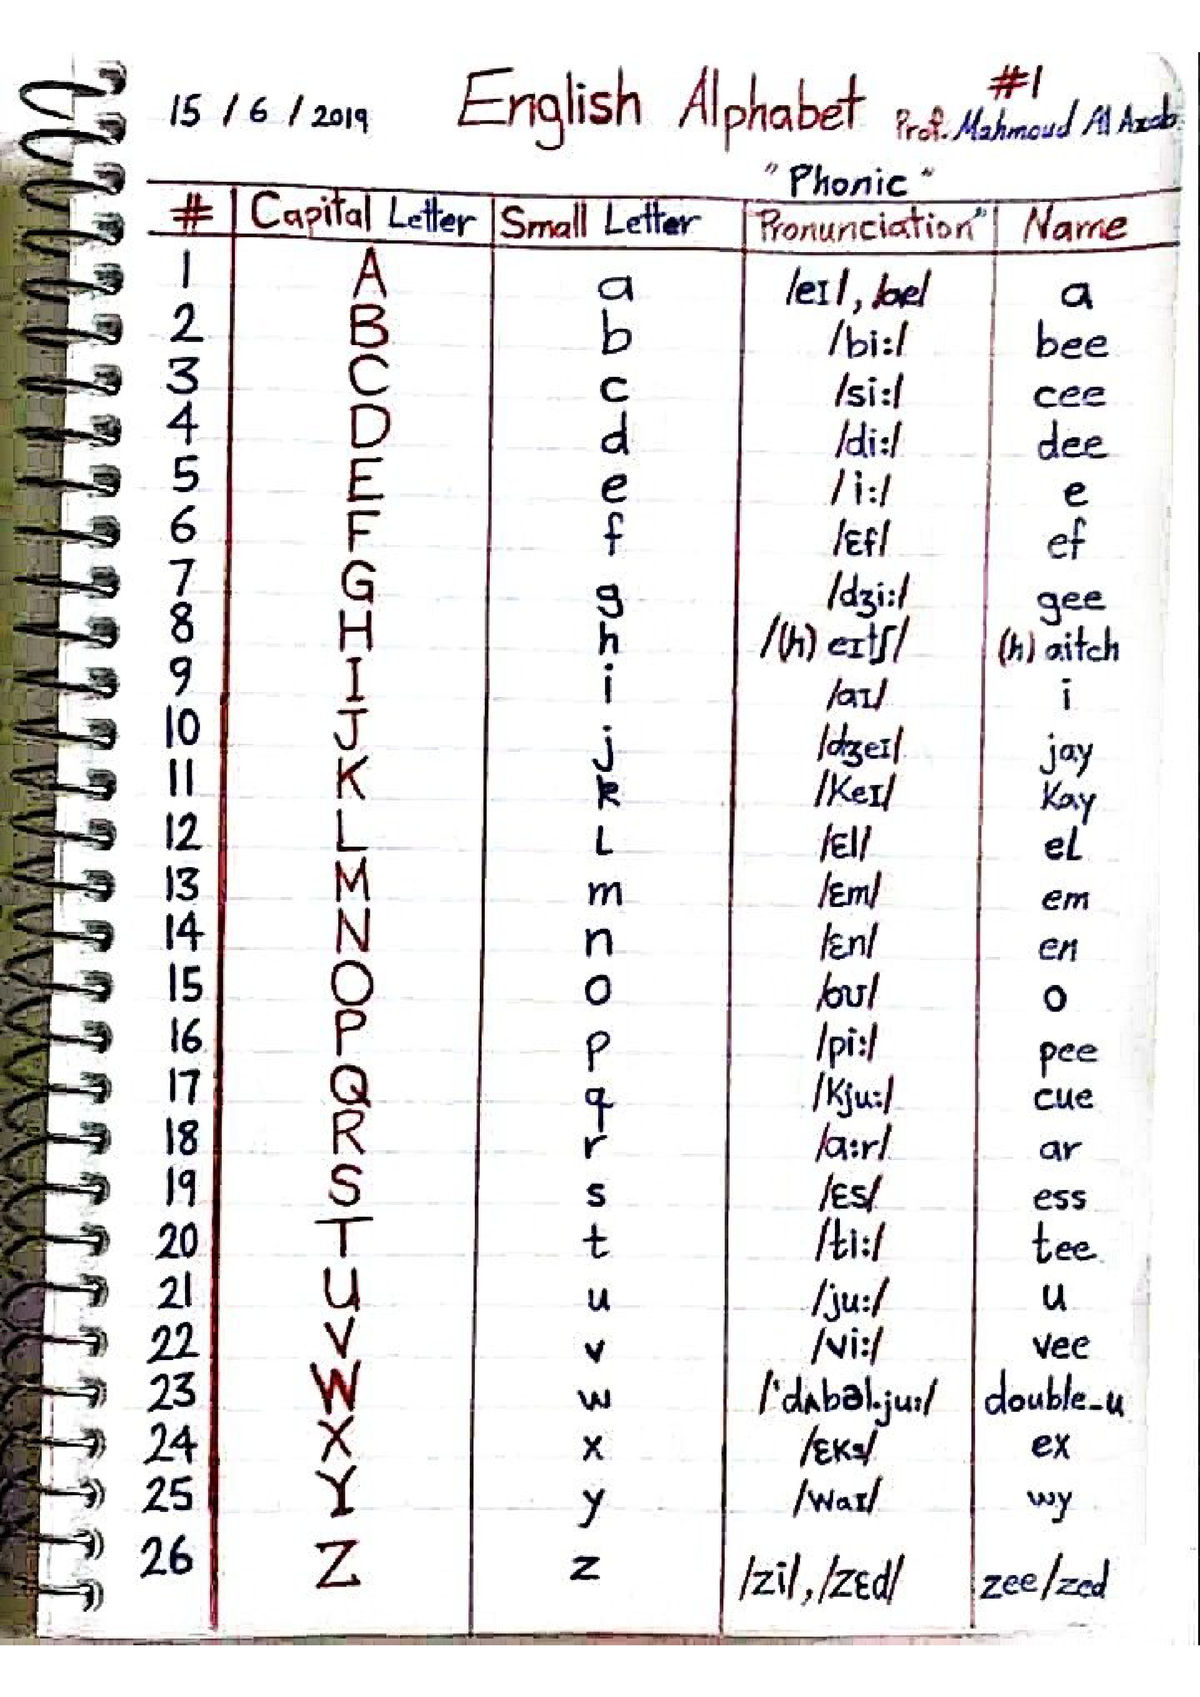 15 / 6 / 2019 English Alphabet #1
Prof. Mahmoud Al Azab
" Phonic "
# Capital Letter Small Letter Pronunciation" Name
1 A a /eɪ/, /æ/ a
2 B b /bi:/ bee
3 C c /si:/ cee
4 D d /di:/ dee
5 E e /i:/ e
6 F f /ɛf/ ef
7 G g /dʒi:/ gee
8 H h /(h) eɪtʃ/ (h) aitch
9 I i /aɪ/ i
10 J j /dʒeɪ/ jay
11 K k /Keɪ/ Kay
12 L L /ɛl/ eL
13 M m /ɛm/ em
14 N n /ɛn/ en
15 O o /oʊ/ o
16 P p /pi:/ pee
17 Q q /Kju:/ cue
18 R r /a:r/ ar
19 S s /ɛs/ ess
20 T t /ti:/ tee
21 U u /ju:/ u
22 V v /vi:/ vee
23 W w /'dʌbəl.ju:/ double_u
24 X x /ɛKs/ ex
25 Y y /waɪ/ wy
26 Z z /zi/, /zɛd/ zee/zed